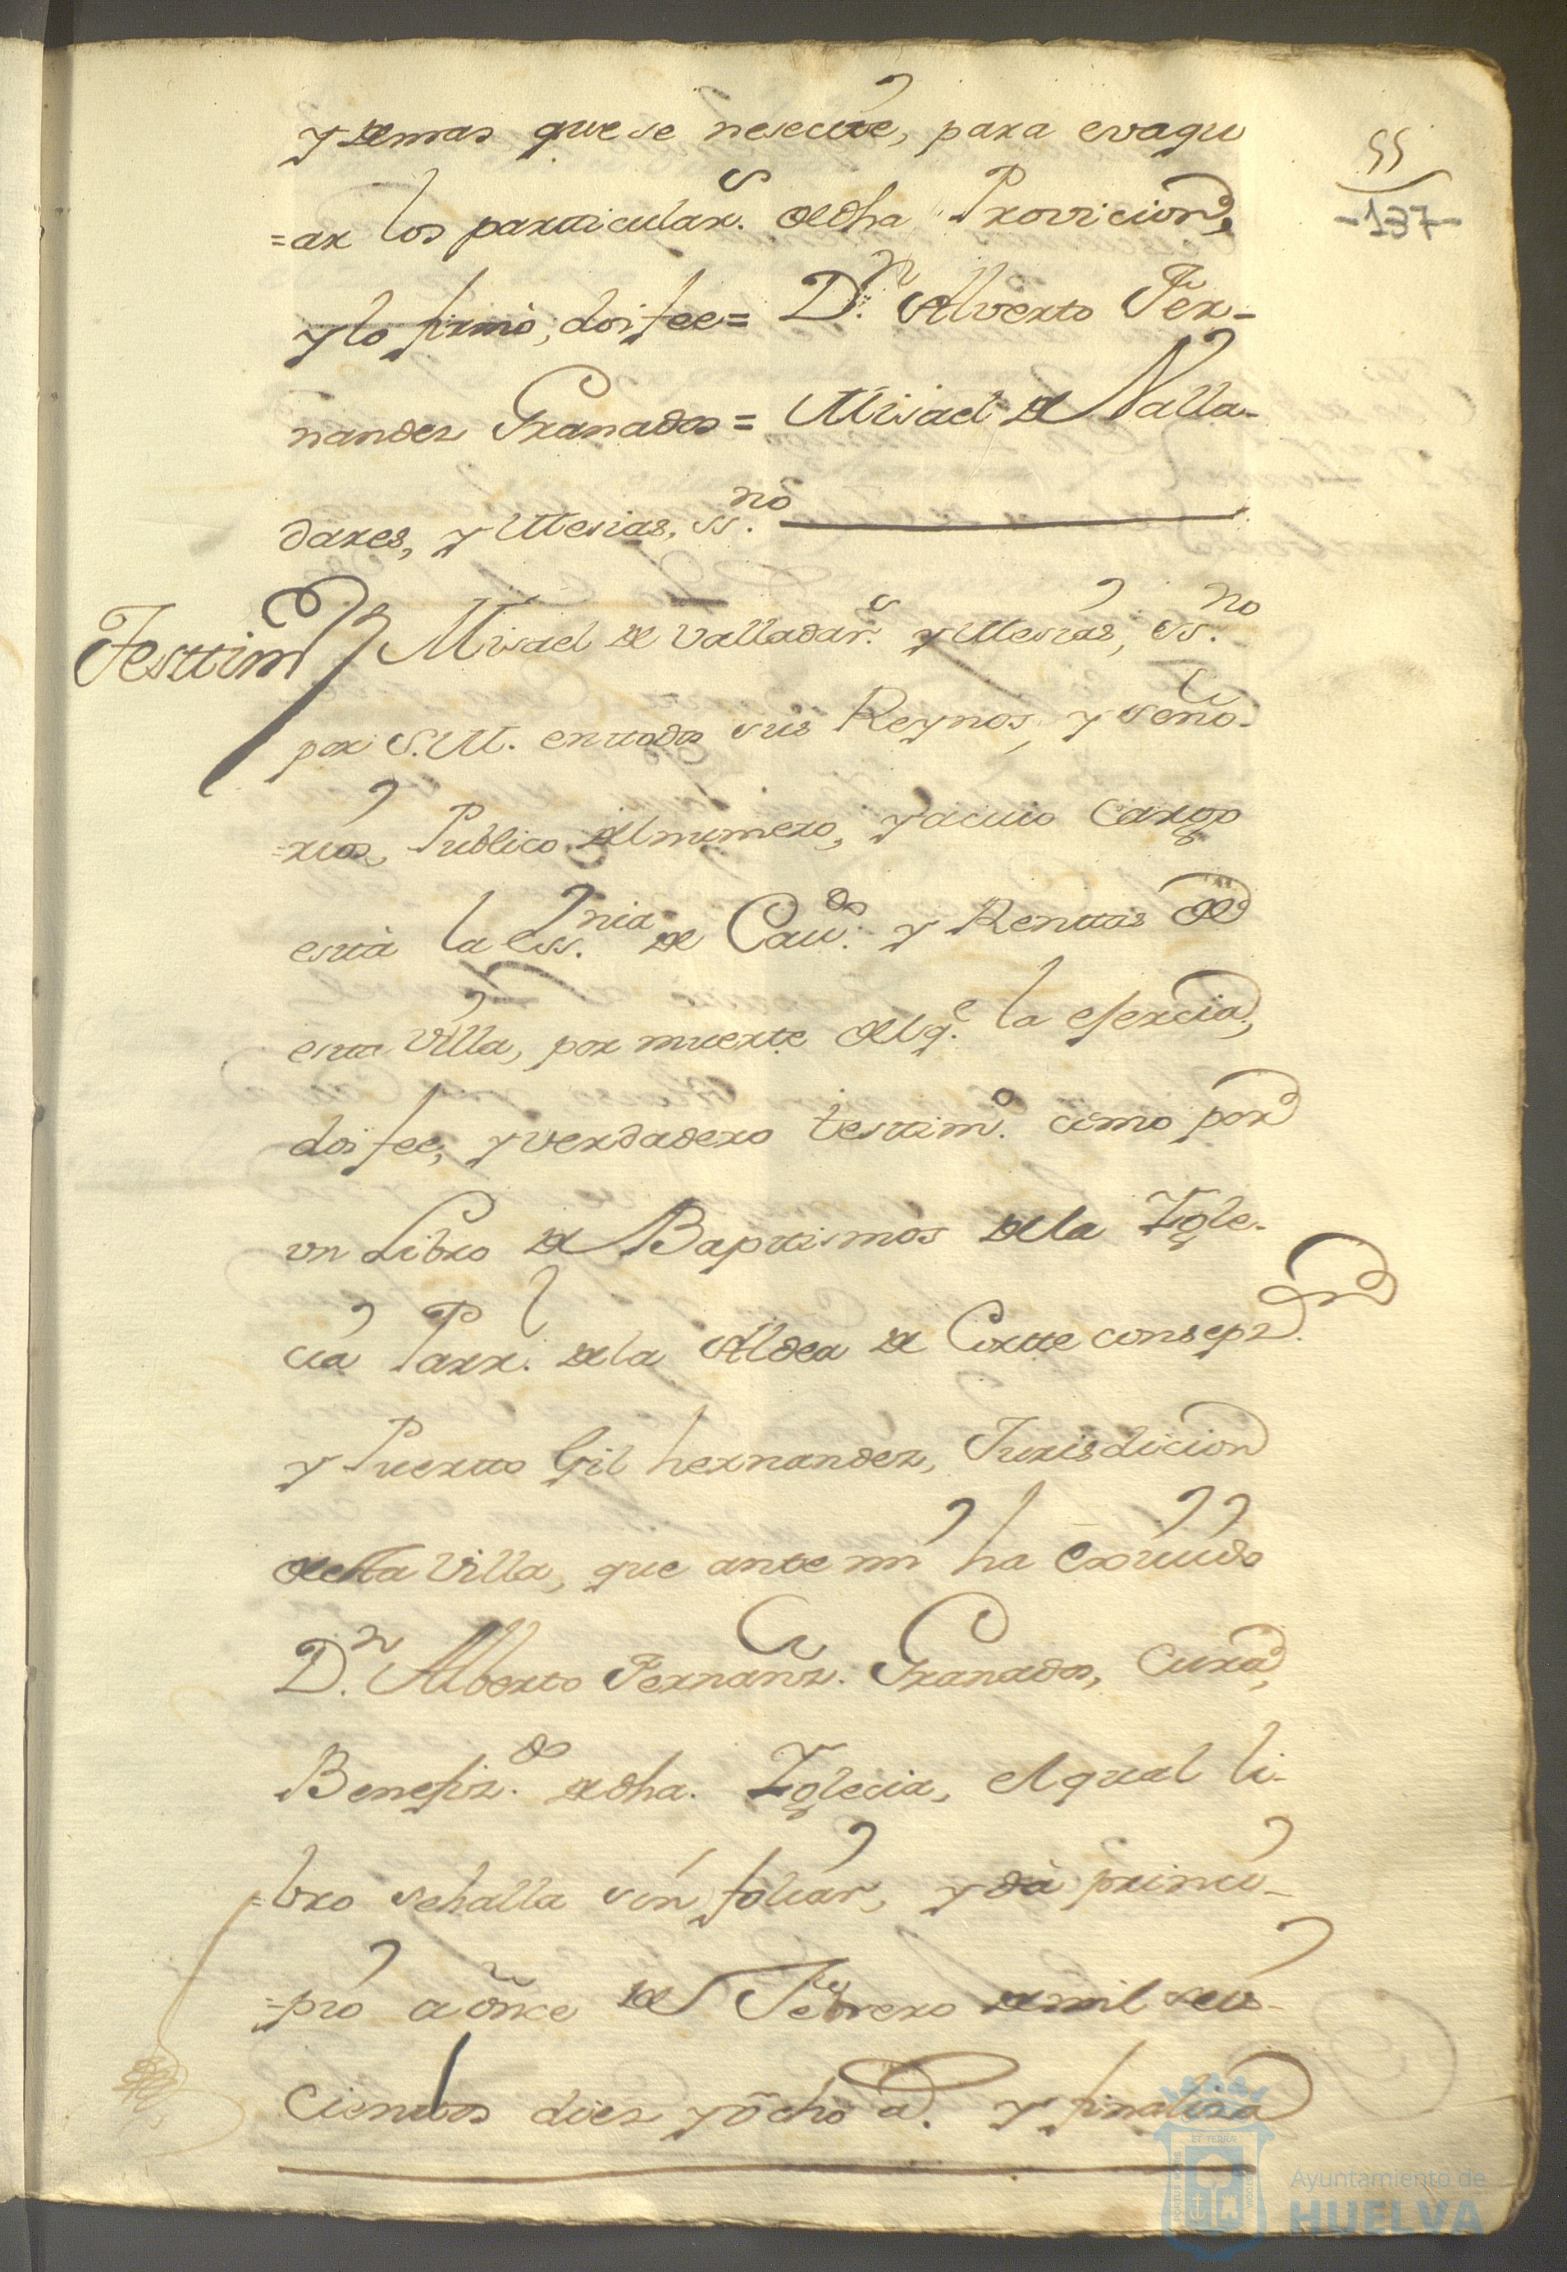 55
-137-
y demas que se nesecite, para evaqu
=ar los particular.s dedha Provicion,
y lo firmò, doi fee= D.n Alverto Fer-
nandez Granados= Misael de Valla-
dares, y Mesias, ss.no
Testtim.o Misael de Valladar.s y Mesias, ss.no
por S.M. en ttodos sus Reynos, y Seño-
=rios, Publico del numero, y a cuio cargo
està la ess.nia de Cau.do y Renttas de
estta Villa, por muerte del q.e la esercia,
doi fee, y verdadero testtim.o como por
vn Libro de Baptismos dela Igle-
cia Parr.l dela Aldea de Cortte consepz.n
y Puertto Gil hernandez, Jurisdicion
destta Villa, que ante mi ha exivido
D.n Alberto Fernañz. Granados, Cura,
Benefiz.do de dha. Iglecia, el qual li-
=bro se halla sin foliar, y dà princi-
=pio a onze de Febrero de mil seis-
cienttos diez y ocho a.s y finaliza
Ayuntamiento de
HUELVA